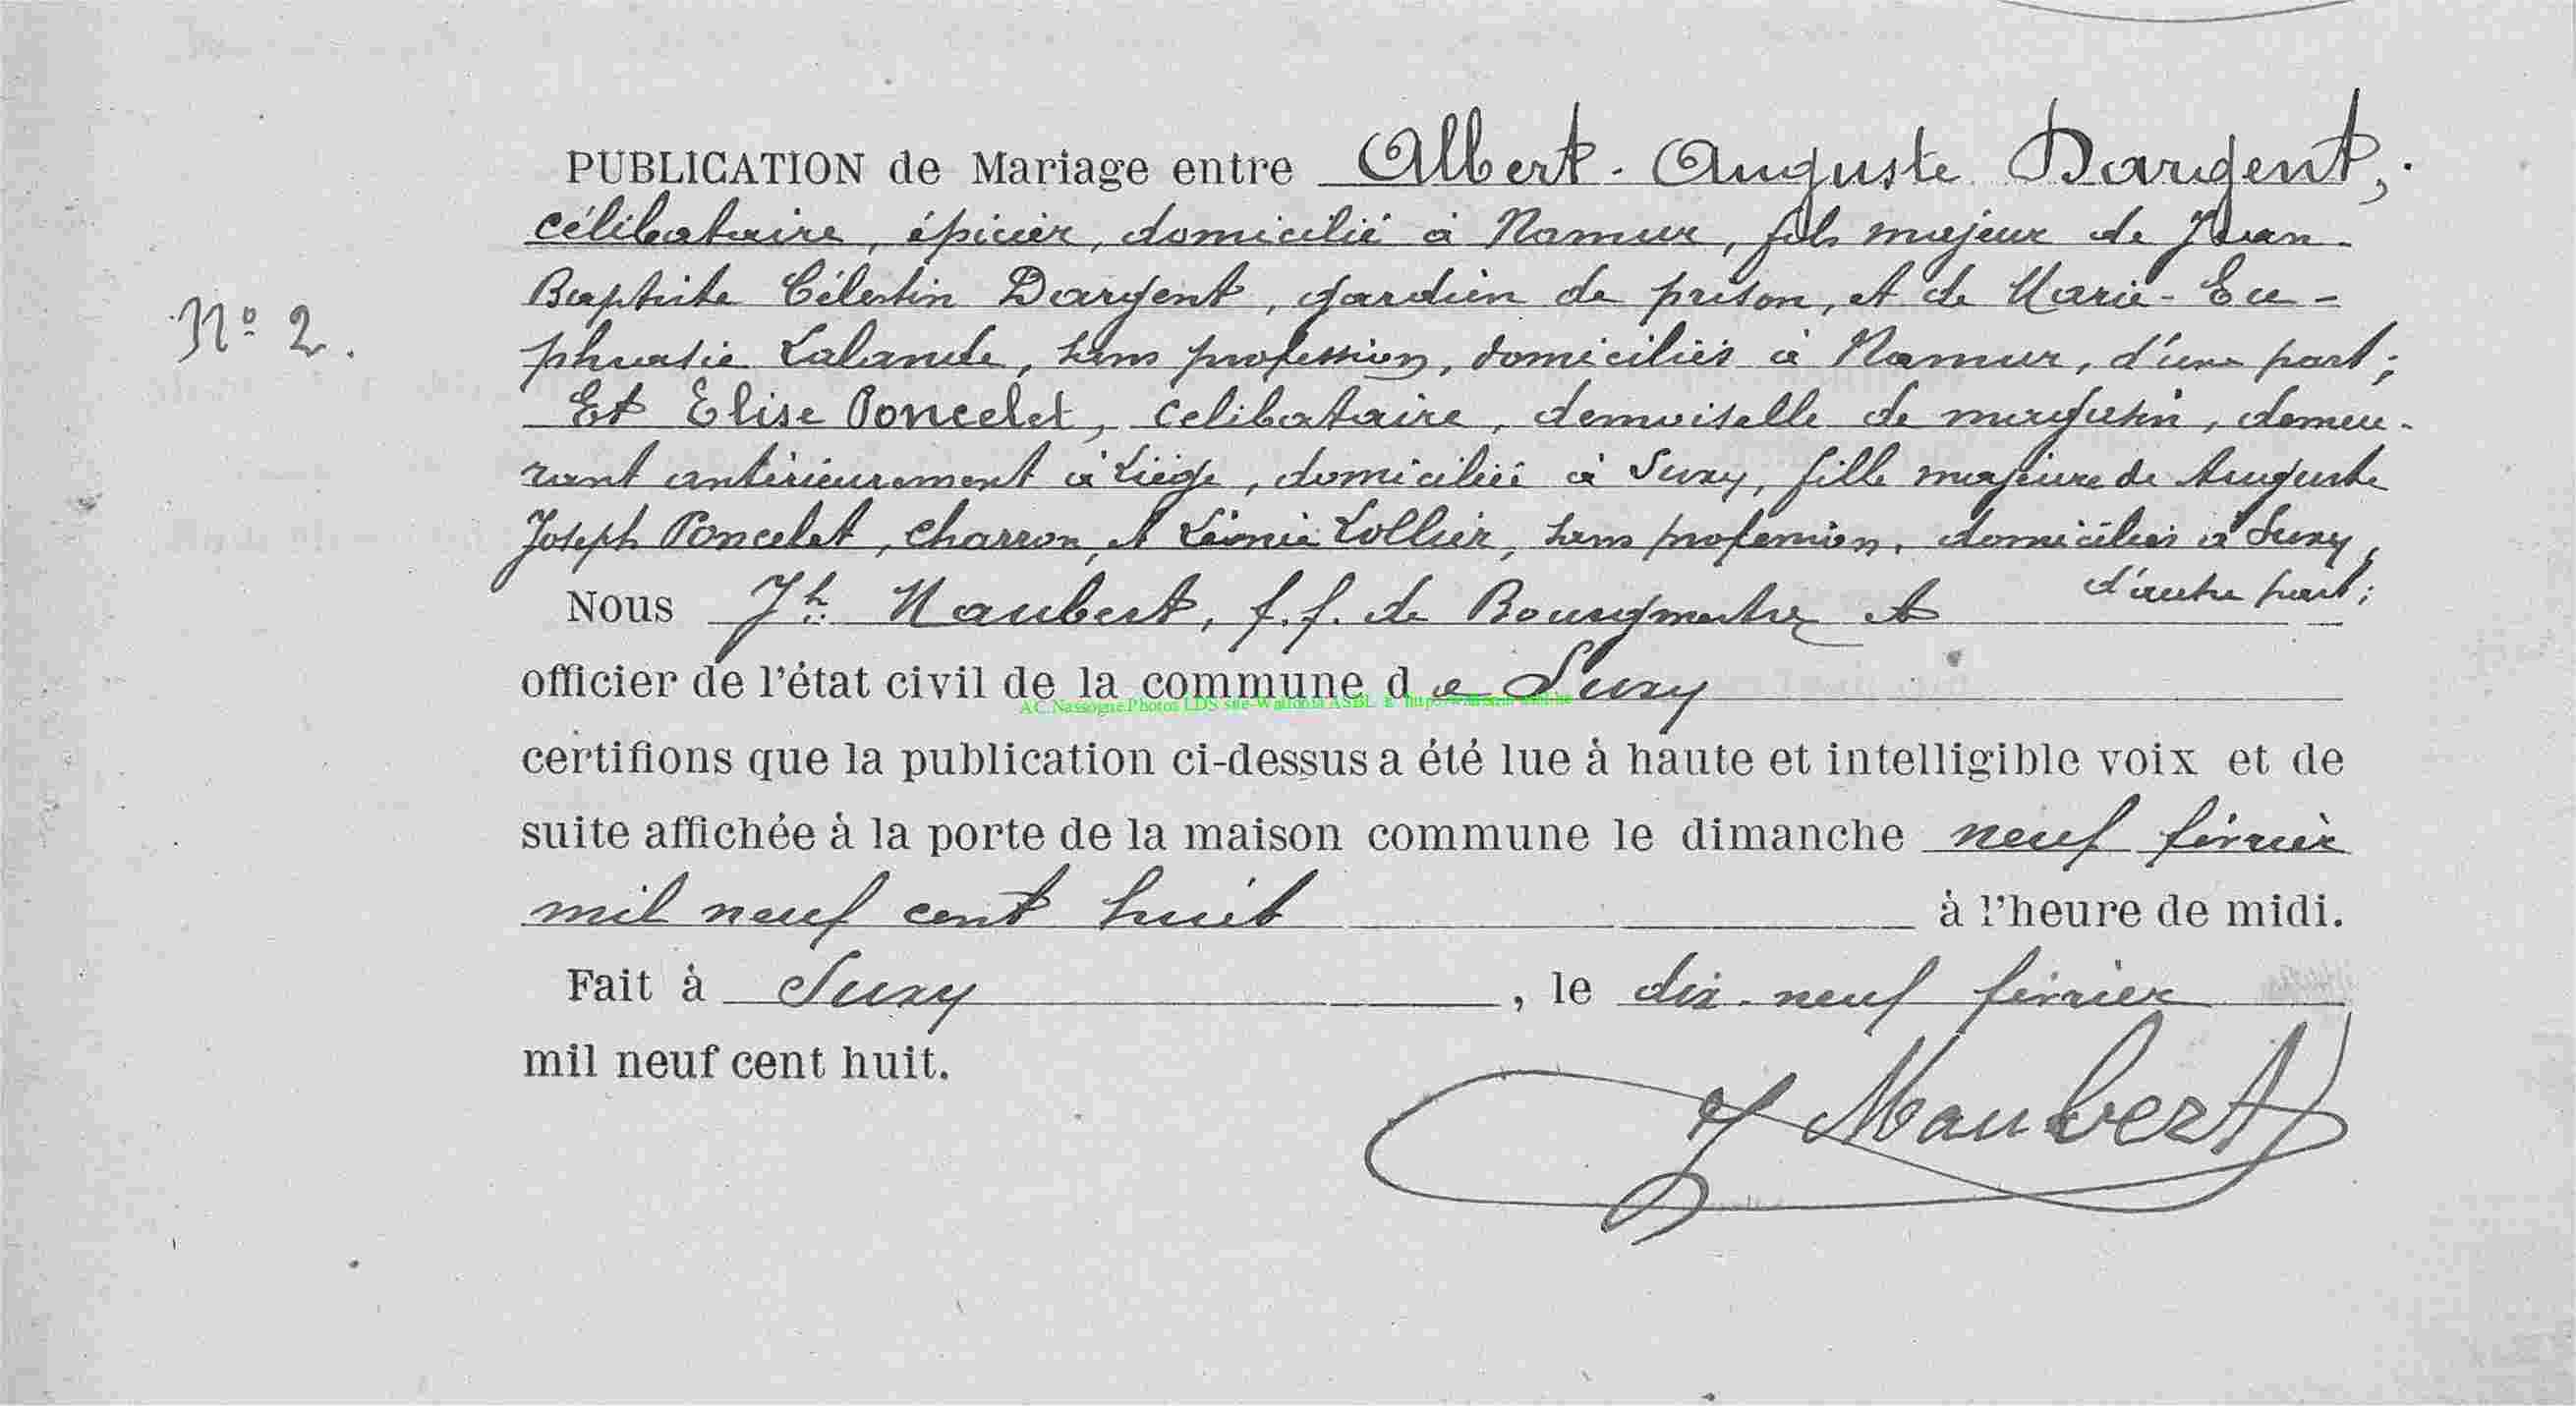 PUBLICATION de Mariage entre Albert-Auguste Dargent,
célibataire, épicier, domicilié à Namur, fils majeur de Jean-
N° 2.
Baptiste Célestin Dargent, gardien de prison, et de Marie-Eu-
phrasie Lalande, sans profession, domiciliés à Namur, d'une part;
Et Elise Poncelet, célibataire, demoiselle de magasin, demeu-
rant antérieurement à Liège, domiciliée à Suxy, fille majeure de Auguste
Joseph Poncelet, charron, et Léonie Collier, sans profession, domiciliés à Suxy,
d'autre part;
Nous Jh. Maubert, f.f. de Bourgmestre et
officier de l'état civil de la commune de Suxy
AC.Nassogne.Photos LDS site-Wallonia ASBL
certifions que la publication ci-dessus a été lue à haute et intelligible voix et de
suite affichée à la porte de la maison commune le dimanche neuf février
mil neuf cent huit à l'heure de midi.
Fait à Suxy, le dix-neuf février
mil neuf cent huit.
J Maubert